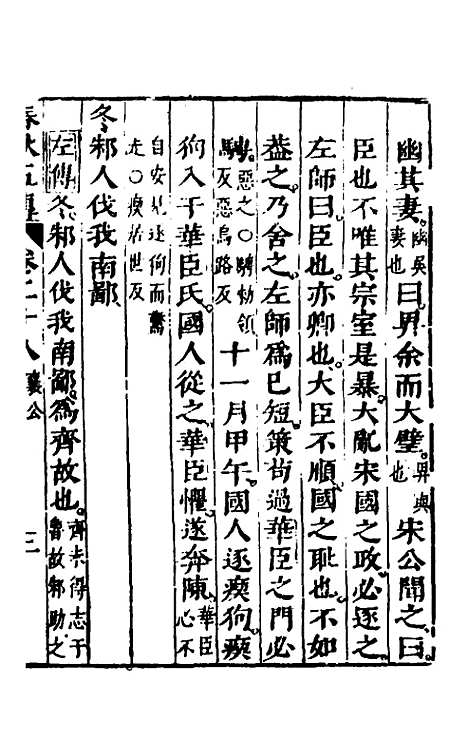 幽其妻幽吳妻也曰畀余而大璧畀與也宋公聞之曰
臣也不唯其宗室是暴大亂宋國之政必逐之
左師曰臣也亦卿也大臣不順國之恥也不如
葢之乃舍之左師爲已短策苟過華臣之門必
騁惡之○騁勑領反惡烏路反十一月甲午國人逐瘈狗瘈
狗入于華臣氏國人從之華臣懼遂奔陳華臣心不
自安見逐狗而驚走○瘈居世反
冬邾人伐我南鄙
左傳冬邾人伐我南鄙爲齊故也齊未得志于魯故邾助之
春秋五傳 卷二十八 襄公 三